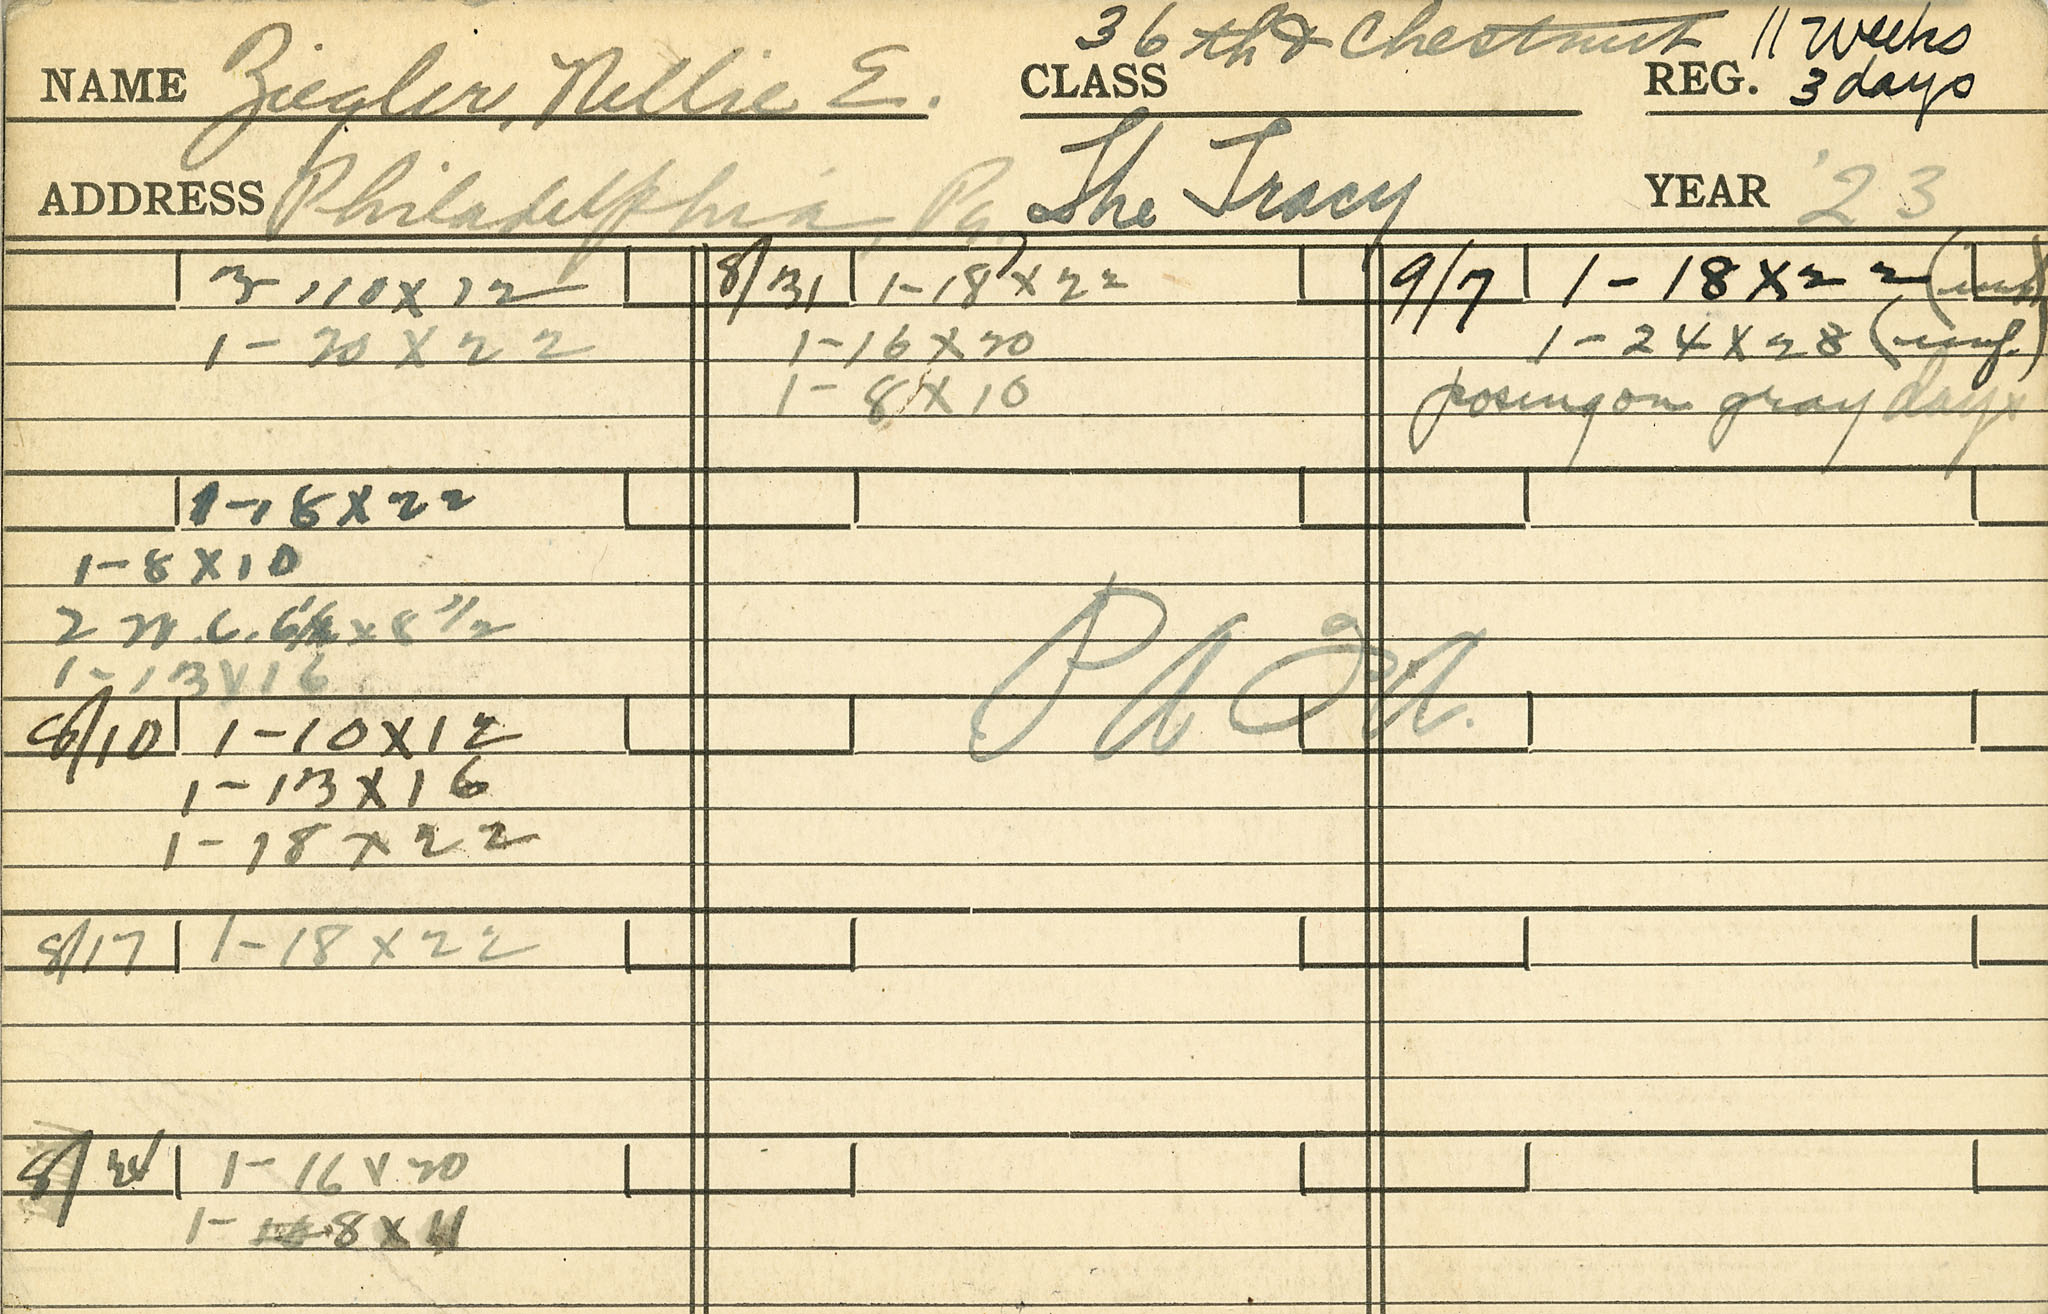 36th & Chestnut 11 weeks
NAME Ziegler, Nellie E. CLASS REG. 3 days
ADDRESS Philadelphia, Pa. The Tracy YEAR '23
3-10x12
1-20x22
1-18x22
1-8x10
2 x8 1/2
1-13x16
8/10 1-10x12
1-13x16
1-18x22
8/17 1-18x22
8/24 1-16x20
1-8x11
8/31 1-18x22
1-16x20
1-8x10
9/7 1-18x22 (unf.)
1-24x28 (unf.)
posing on gray days